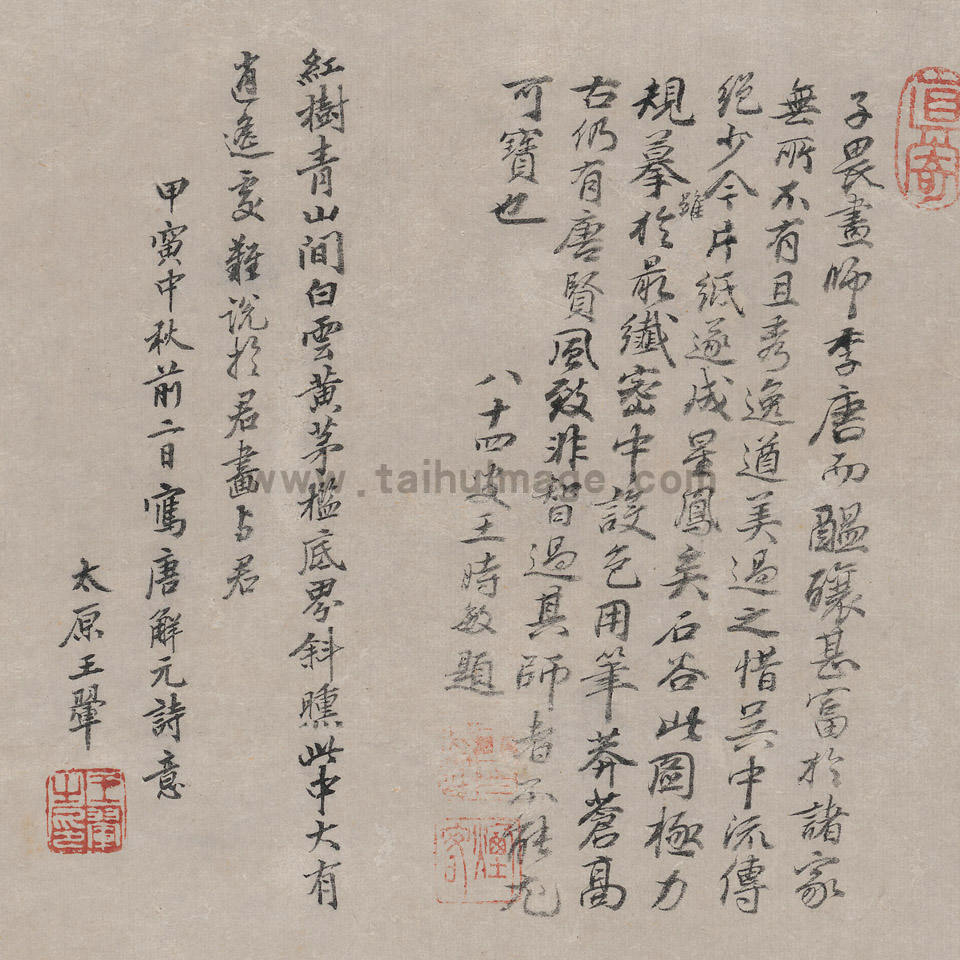 子畏畫師李唐而醞釀甚富於諸家
無所不有且秀逸遒美過之惜吳中流傳
絕少今雖片紙遂成星鳳矣石谷此圖極力
規摹於最纖密中設色用筆莽蒼高
古仍有唐賢風致非智過其師者不能尤
可寶也
八十四叟王時敏題
紅樹青山間白雲黃茅檻底界斜曛此中大有
逍遙處難說於君畫与君
甲寅中秋前二日寫唐解元詩意
太原王翬
www.taihuimage.com